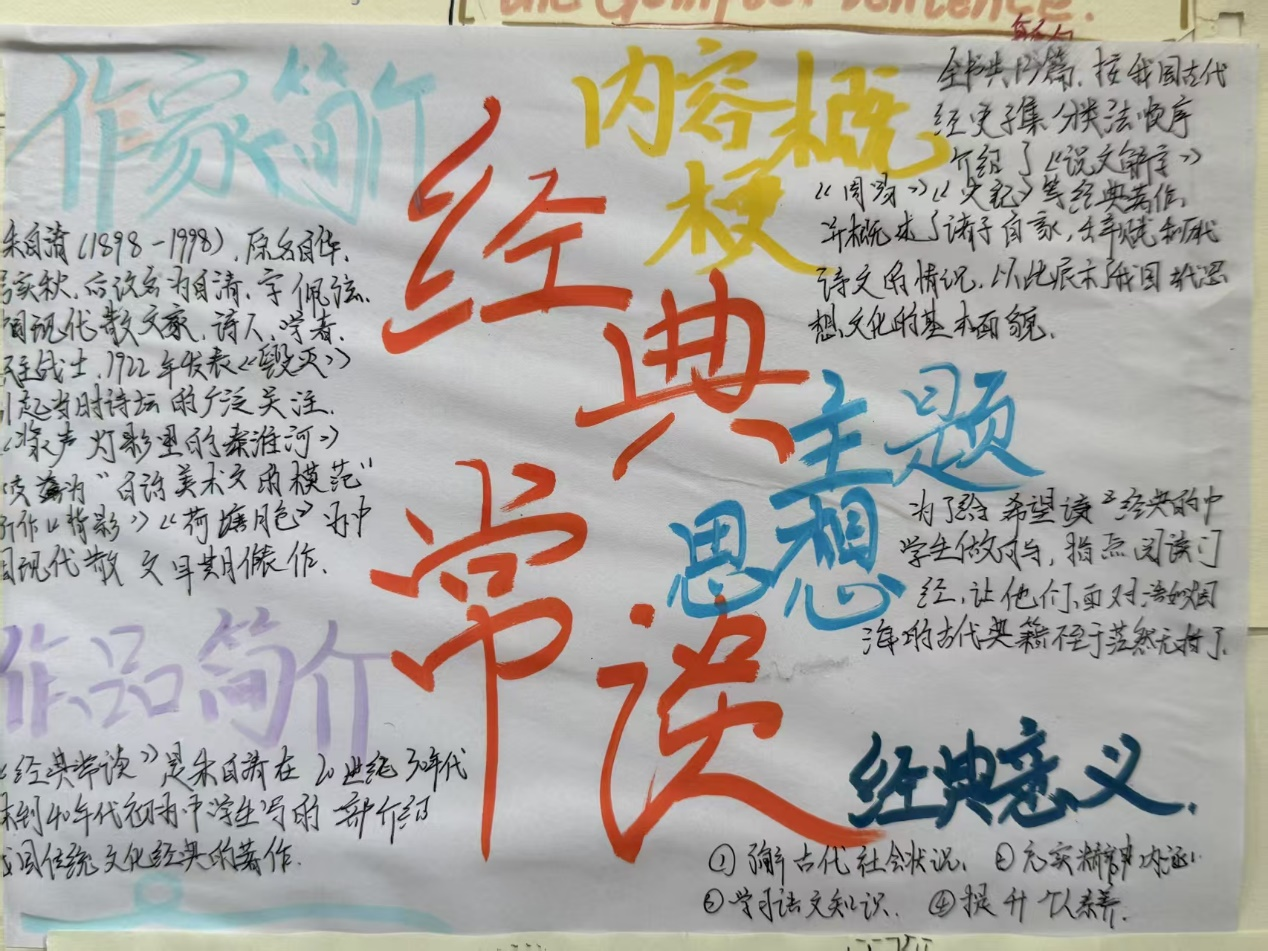 the Gemipoer sentence.
作家简介
朱自清（1898-1998），原名自华，
号实秋，后改名为自清，字佩弦。
国现代散文家，诗人，学者，
民主战士，1922年发表《毁灭》
引起当时诗坛的广泛关注，
《桨声灯影里的秦淮河》
为"白话美术文的模范"
所作《背影》《荷塘月色》为中
国现代散文早期代表作．
作品简介
《经典常谈》是朱自清在20世纪30年代
末到40年代初为中学生写的一部介绍
我国传统文化经典的著作．
经典
常谈
内容概
梗
全书共13篇，按我国古代
经史子集分类法顺序
介绍了《说文解字》
《周易》《史记》等经典著作，
并概述了诸子百家，辞赋和历代
诗文的情况，以此展示了我国古代思
想，文化的基本面貌．
主题
思想
为了给希望读经典的中
学生做向导，指点阅读门
径，让他们面对浩如烟
海的古代典籍不至于茫然无措了．
经典意义．
①了解古代社会状况．②充实精神内涵
③学习语文知识．④提升个人素养．